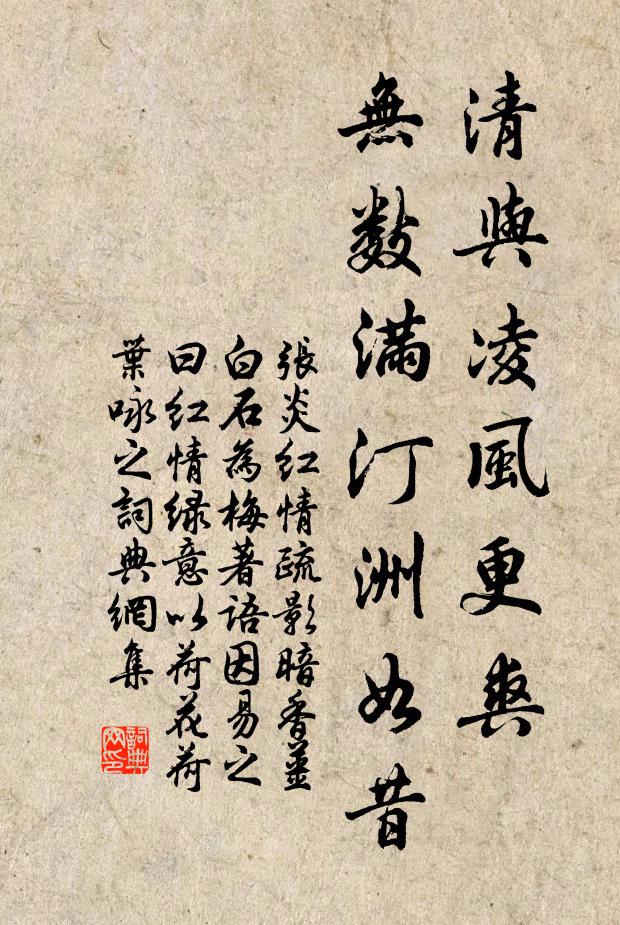 清與凌風更爽
無數滿汀洲如昔
張炎紅情疏影暗香薑
白石為梅著語因易之
曰紅情綠意以荷花荷
葉咏之詞典網集
詞典
網印